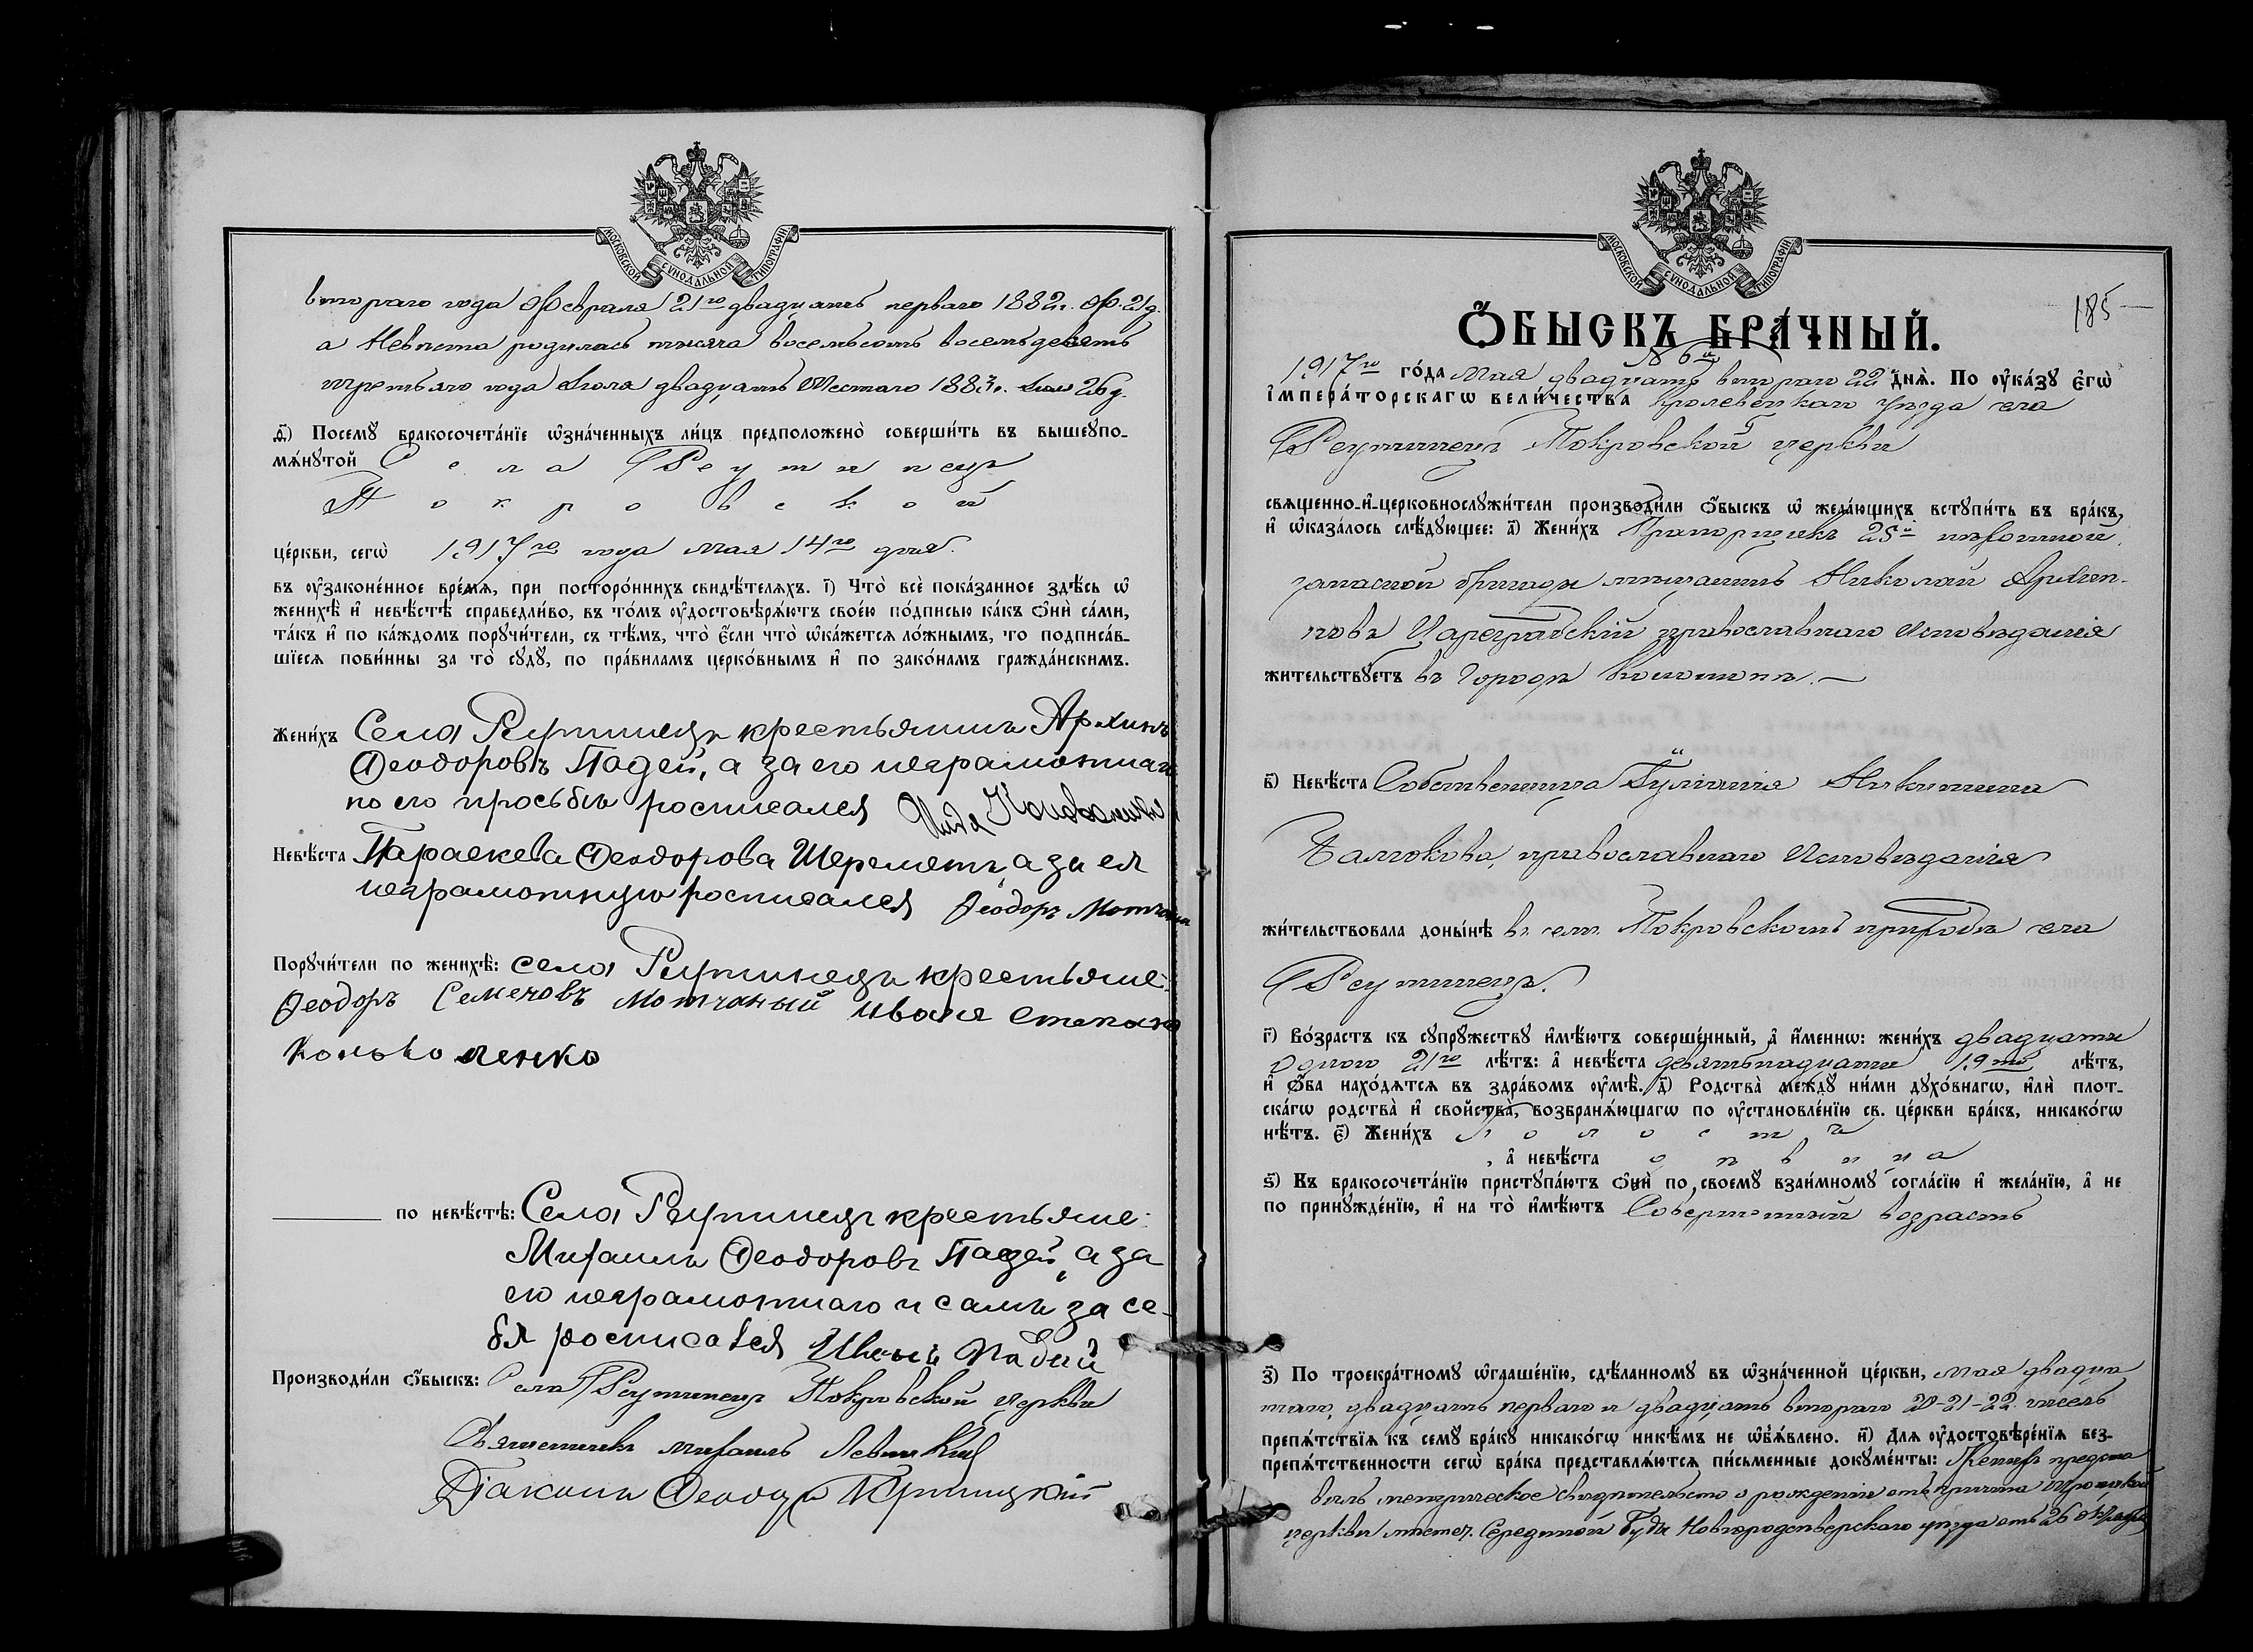 МОСКОВСКОЙ СУНОДАЛЬНОЙ ТИПОГРАФІИ
втораго года Февраля 21го двадцать перваго 1882г. Фев. 21д.
а Невѣста родилась тысяча восемьсотъ восемьдесятъ
третьяго года Іюля двадцать шестаго 1883г. Іюля 26д.
д҃) Посемꙋ бракосочета́нїе ѡ҆зна́ченныхъ ли́цъ предположено̀ соверши́ть въ вышеꙋпо-
мѧ́нꙋтой Села Реутинецъ
Покровской
це́ркви, сегѡ̀ 1917го года мая 14го дня.
въ ᲂу҆законе́нное вре́мѧ, при посторо́ннихъ свидѣ́телѧхъ. і҃) Что̀ всѐ пока́занное здѣ́сь ѡ҆
женихѣ̀ и҆ невѣ́стѣ справедли́во, въ то́мъ ᲂу҆достовѣрѧ́ютъ свое́ю по́дписью ка́къ ѻ҆нѝ са́ми,
та́къ и҆ по ка́ждомъ порꙋчи́тели, съ тѣ́мъ, что̀ є҆́сли что̀ ѡ҆ка́жетсѧ ло́жнымъ, то подписа́в-
шїесѧ пови́нны за то̀ сꙋдꙋ̀, по пра́виламъ церко́внымъ и҆ по зако́намъ гражда́нскимъ.
Жени́хъ Села Реутинецъ крестьянинъ Архипъ
Ѳеодоровъ Падей, а за его неграмотнаго
по его просьбѣ росписался
Невѣ́ста Параскева Ѳеодорова Шереметъ, а за ея
неграмотную росписался Ѳеодоръ Мотчаный
Порꙋчи́тели по женихѣ̀: села Реутинецъ крестьяне:
Ѳеодоръ Семеновъ Мотчаный Иванъ Степано
по невѣ́стѣ: Села Реутинецъ крестьяне:
Михаилъ Ѳеодоровъ Падей, а за
его неграмотнаго и самъ за се-
бя росписался Иванъ Падей
Производи́ли ѻ҆́быскъ: Села Реутинецъ Покровской церкви
Священникъ Михаилъ Левицкій
Діаконъ Ѳеодоръ Криницкій
МОСКОВСКОЙ СУНОДАЛЬНОЙ ТИПОГРАФІИ
185
Ѻ҆БЫСКЪ БРА́ЧНЫЙ.
№ 6й
1917го го́да Мая двадцать втораго 22 днѧ̀. По ᲂу҆ка́зꙋ є҆гѡ̀
і҆мпера́торскагѡ вели́чества Кролевецкаго уѣзда села
Реутинецъ Покровской церкви
свѧщенно-и҆-церковнослꙋжи́тели производи́ли ѻ҆́быскъ ѡ҆ жела́ющихъ встꙋпи́ть въ бра́къ,
и҆ ѡ҆каза́лось слѣ́дꙋющее: а҃) Жени́хъ Прапорщикъ 25й пѣхотной
запасной бригады мѣщанинъ Николай Архип-
повъ Цареградскій православнаго Исповѣданія
жи́тельствꙋетъ въ Городѣ Конотопѣ.
в҃) Невѣ́ста Собственница Іуліанія Никитина
православнаго Исповѣданія
жи́тельствовала доны́нѣ въ селѣ Покровскомъ приходѣ села
Реутинецъ.
г҃) Во́зрастъ къ сꙋпрꙋ́жествꙋ и҆мѣ́ютъ соверше́нный, а҆ и҆́менно: жени́хъ двадцати
одного 21го лѣ́тъ: а҆ невѣ́ста девятьнадцати 19ти лѣ́тъ,
и҆ ѻ҆́ба нахо́дѧтсѧ въ здра́вомъ ᲂу҆мѣ̀. д҃) Родства̀ междꙋ ни́ми дꙋхо́внагѡ, и҆лѝ плот-
ска́гѡ родства̀ и҆ свойства̀, возбранѧ́ющагѡ по ᲂу҆становле́нїю св. це́ркви бра́къ, никако́гѡ
нѣ́тъ. є҃) Жени́хъ холостъ
, а҆ невѣ́ста дѣвица
ѕ҃) Въ бракосочета́нїю пристꙋпа́ютъ ѻ҆нѝ по своемꙋ̀ взаи́мномꙋ согла́сїю и҆ жела́нїю, а҆ не
по принꙋжде́нїю, и҆ на то̀ и҆мѣ́ютъ Совершенный возрастъ
з҃) По троекра́тномꙋ ѡ҆глаше́нїю, сдѣ́ланномꙋ въ ѡ҆зна́ченной це́ркви, мая двадца
таго, двадцать перваго и двадцать втораго 20-21-22. чиселъ
препѧ́тствїѧ къ семꙋ̀ бра́кꙋ никако́гѡ никѣ́мъ не ѡ҆б̾ѧ́влено. и҃) Длѧ ᲂу҆достовѣре́нїѧ без-
препѧ́тственности сегѡ̀ бра́ка представлѧ́ютсѧ пи́сьменные докꙋме́нты: Женихъ предста
вилъ метрическое свидѣтельство о рожденіи отъ причта Троицкой
церкви мѣстеч. Середины Буды Новгородсѣверскаго уѣзда отъ 26 октября